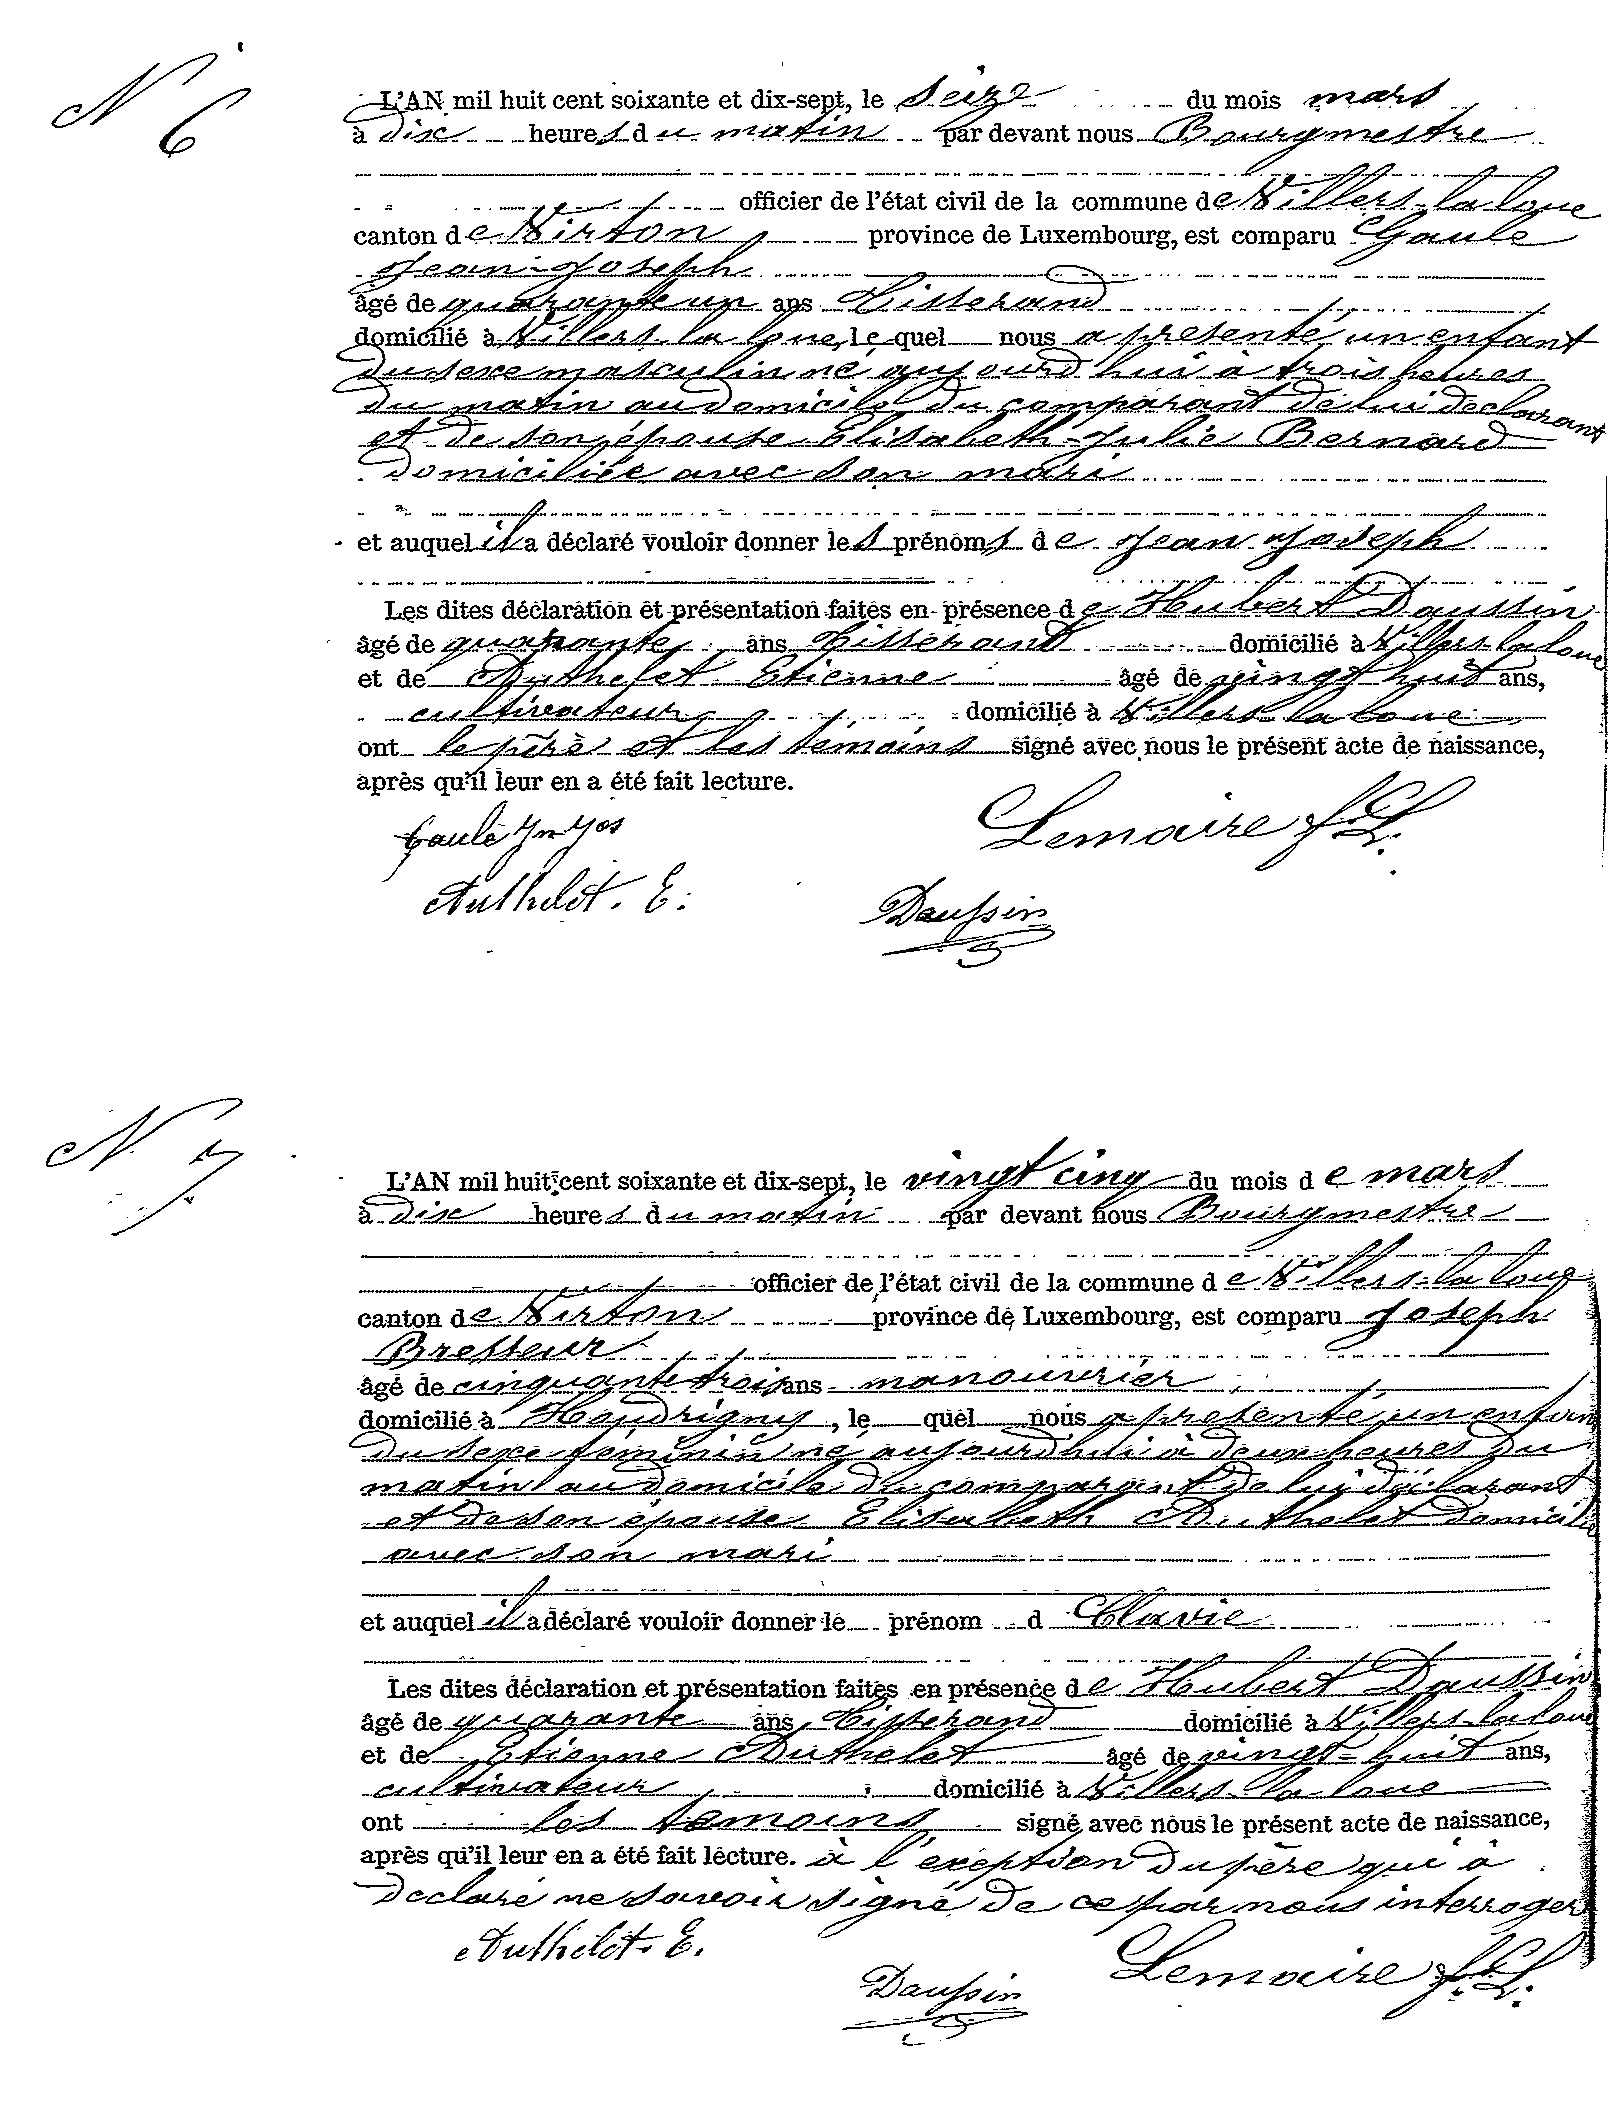 N 6
L'AN mil huit cent soixante et dix-sept, le seize du mois mars
à dix heures du matin par devant nous Bourgmestre
officier de l'état civil de la commune de Villers-la-loue
canton de Virton province de Luxembourg, est comparu Gaule
Jean-Joseph
âgé de quarante un ans Tisserand
domicilié à Villers-la-loue, le quel nous a présenté un enfant
du sexe masculin né aujourd'hui à trois heures
du matin au domicile du comparant de lui déclarant
et de son épouse Elisabeth-Julie Bernard
domiciliée avec son mari
et auquel il a déclaré vouloir donner les prénoms de Jean Joseph
Les dites déclaration et présentation faites en présence de Hubert Daussin
âgé de quarante ans Tisserand domicilié à Villers-la loue
et de Authelet Etienne âgé de vingt huit ans,
cultivateur domicilié à Villers-la loue
ont le père et les témoins signé avec nous le présent acte de naissance,
après qu'il leur en a été fait lecture.
Gaule Jn Jos
Lemaire J. L.
Authelet. E.
Daussin
N 7
L'AN mil huit cent soixante et dix-sept, le vingt cinq du mois de mars
à dix heures du matin par devant nous Bourgmestre
officier de l'état civil de la commune de Villers-la loue
canton de Virton province de Luxembourg, est comparu Joseph
Bresseur
âgé de cinquante trois ans manouvrier
domicilié à Houdrigny, le quel nous a présenté un enfant
du sexe féminin né aujourd'hui à deux heures du
matin au domicile du comparant de lui déclarant
et de son épouse Elisabeth Authelet domicilié
avec son mari
et auquel il a déclaré vouloir donner le prénom d Clavie
Les dites déclaration et présentation faites en présence de Hubert Daussin
âgé de quarante ans Tisserand domicilié à Villers-la loue
et de Etienne Authelet âgé de vingt-huit ans,
cultivateur domicilié à Villers-la loue
ont les temoins signé avec nous le présent acte de naissance,
après qu'il leur en a été fait lecture. à l'exeption du père qui à
declaré ne savoir signé de ce par nous interroger
Authelet. E.
Daussin
Lemaire J. L.